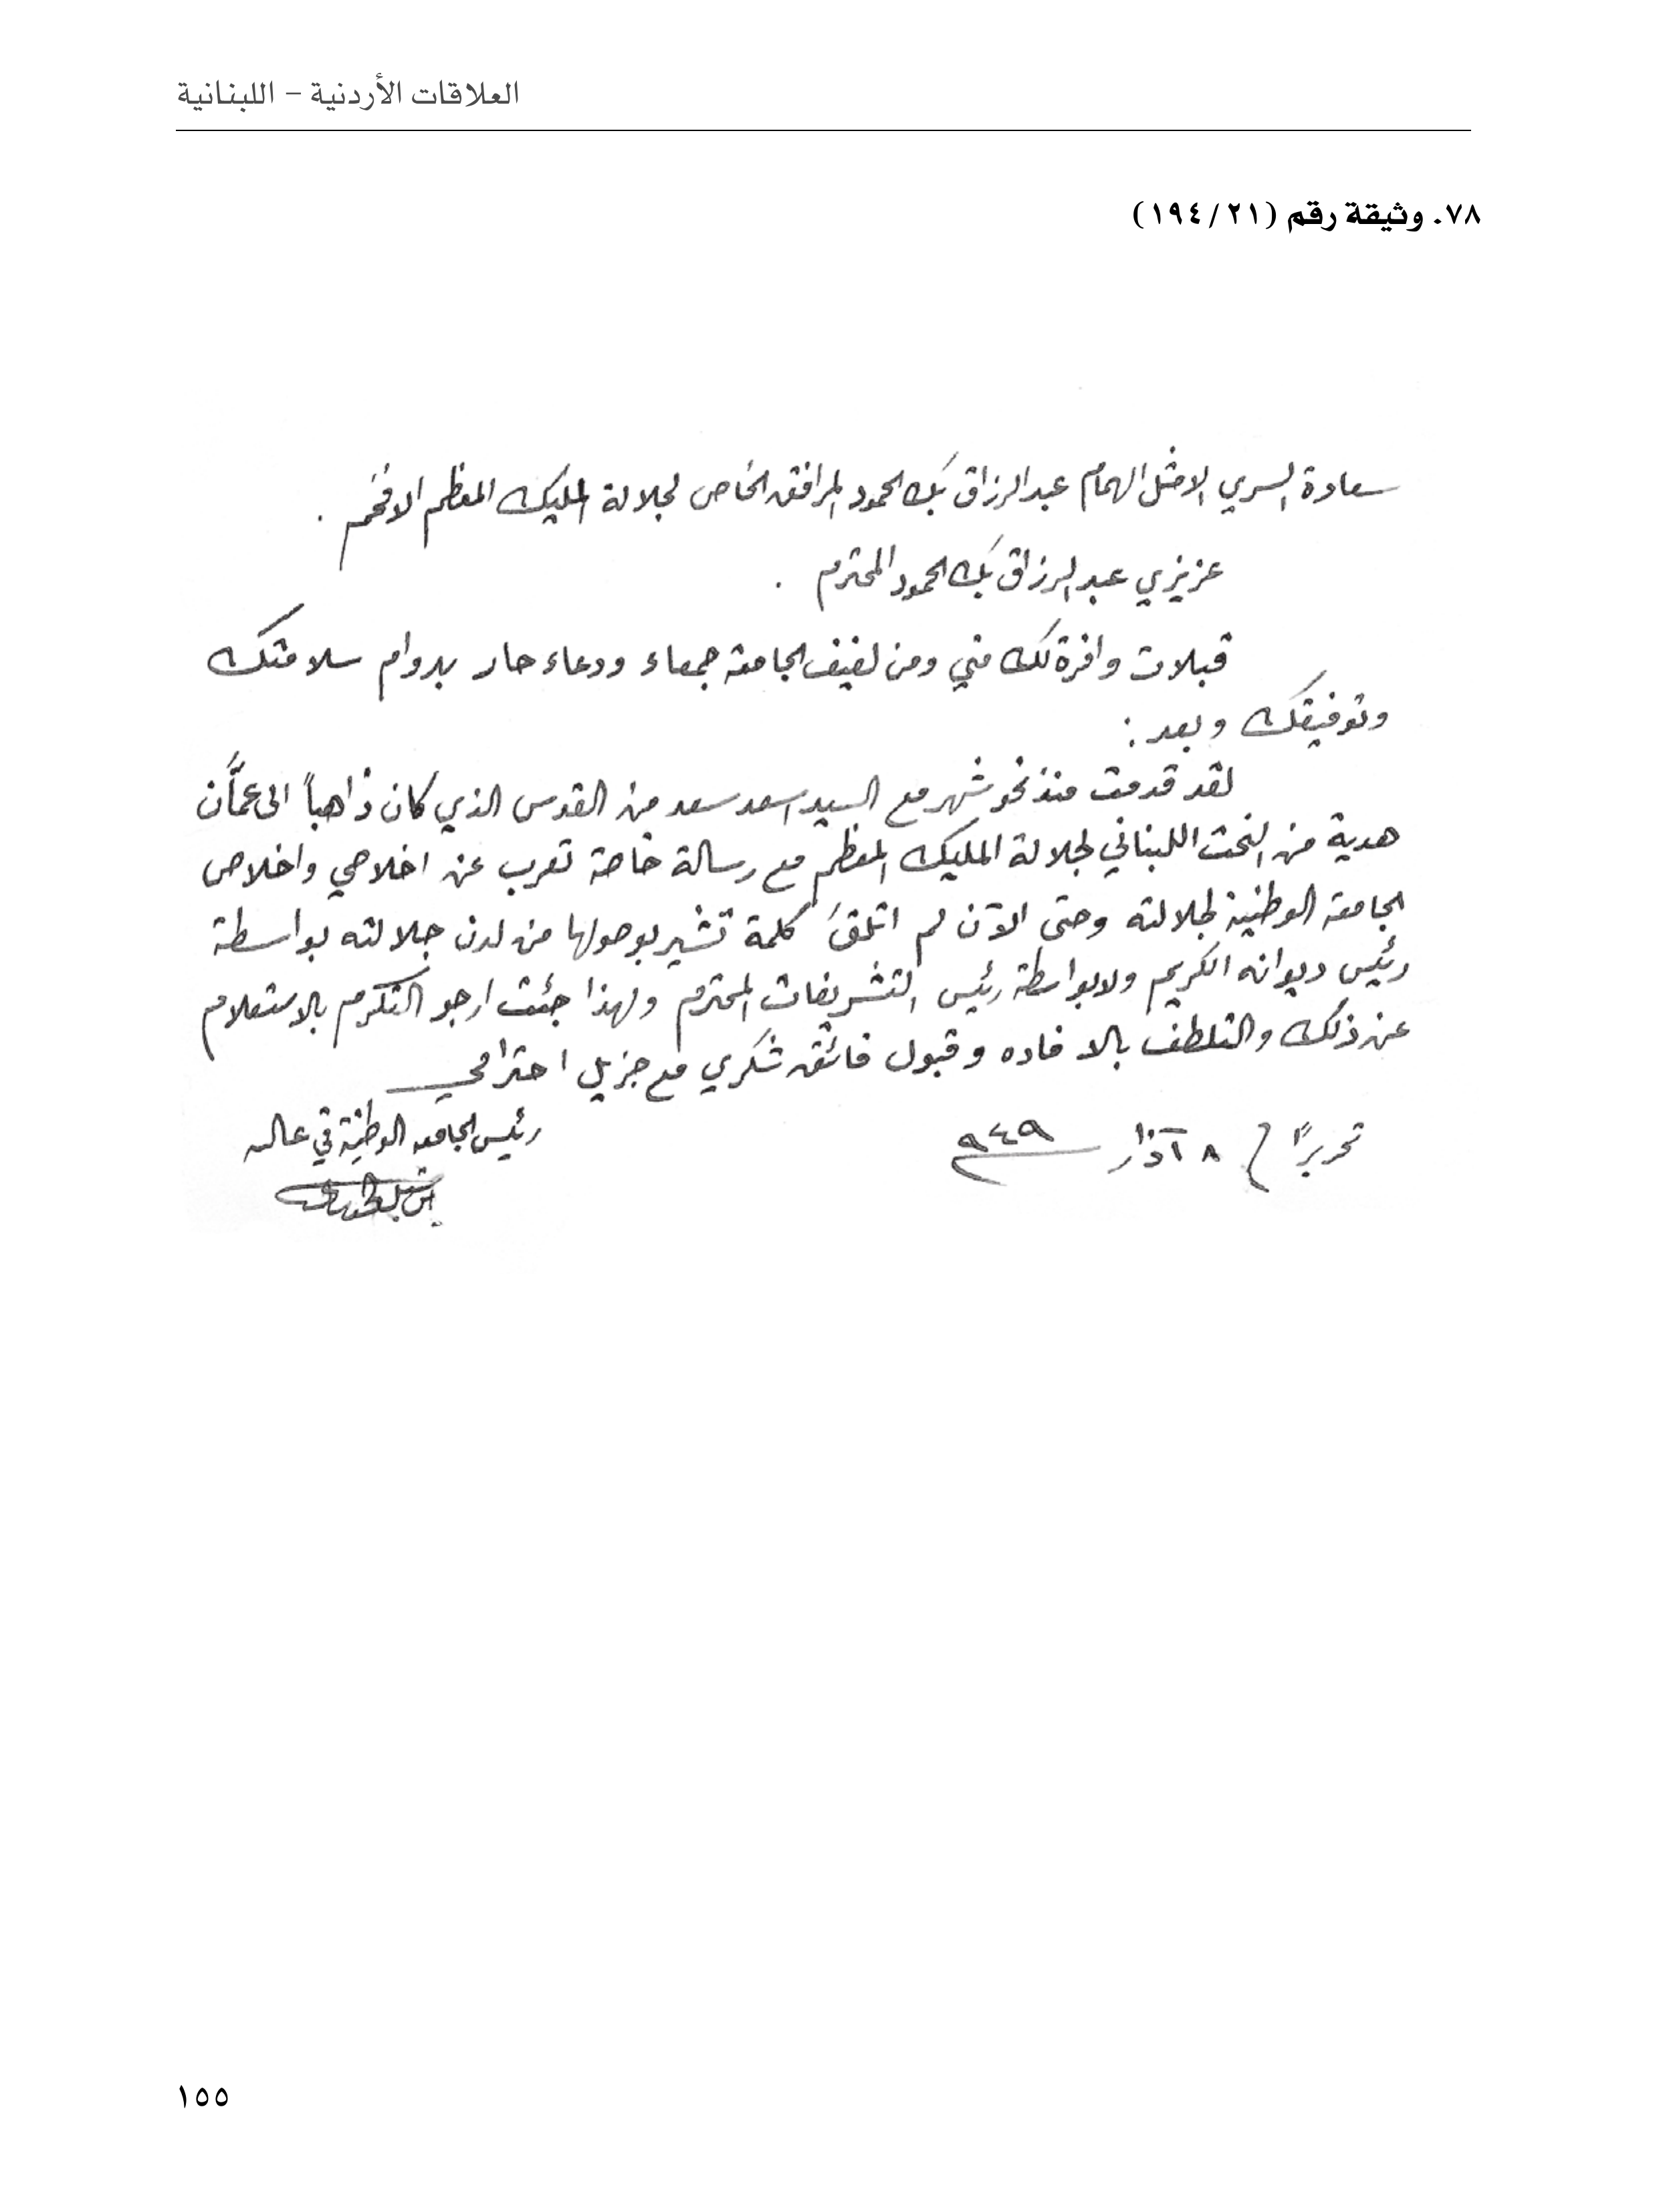 العلاقات الأردنية – اللبنانية
٧٨. وثيقة رقم (١٩٤/٢١)
سعادة السري الامثل الهمام عبد الرزاق بك الحمود المرافق الخاص لجلالة المليك المعظم الافخم .
عزيزي عبد الرزاق بك الحمود المحترم .
قبلات وافرة لك مني ومن لفيف الجامعة جمعاء ودعاء حار بدوام سلامتك
وتوفيقك وبعد :
لقد قدمت منذ نحو شهر مع السيد اسعد سعد من القدس الذي كان ذاهباً الى عمَّان
هدية من النحت اللبناني لجلالة المليك المعظم مع رسالة خاصة تعرب عن اخلاصي واخلاص
الجامعة الوطنية لجلالته وحتى الآن لم اتلقَ كلمة تشير بوصولها من لدن جلالته بواسطة
رئيس ديوانه الكريم ولا بواسطة رئيس التشريفات المحترم ولهذا جئت ارجو التكرم بالاستعلام
عن ذلك والتلطف بالافاده وقبول فائق شكري مع جزيل احترامي
رئيس الجامعه الوطنية في عاليه
تحريرًا في ١٨ آذار ٩٤٩